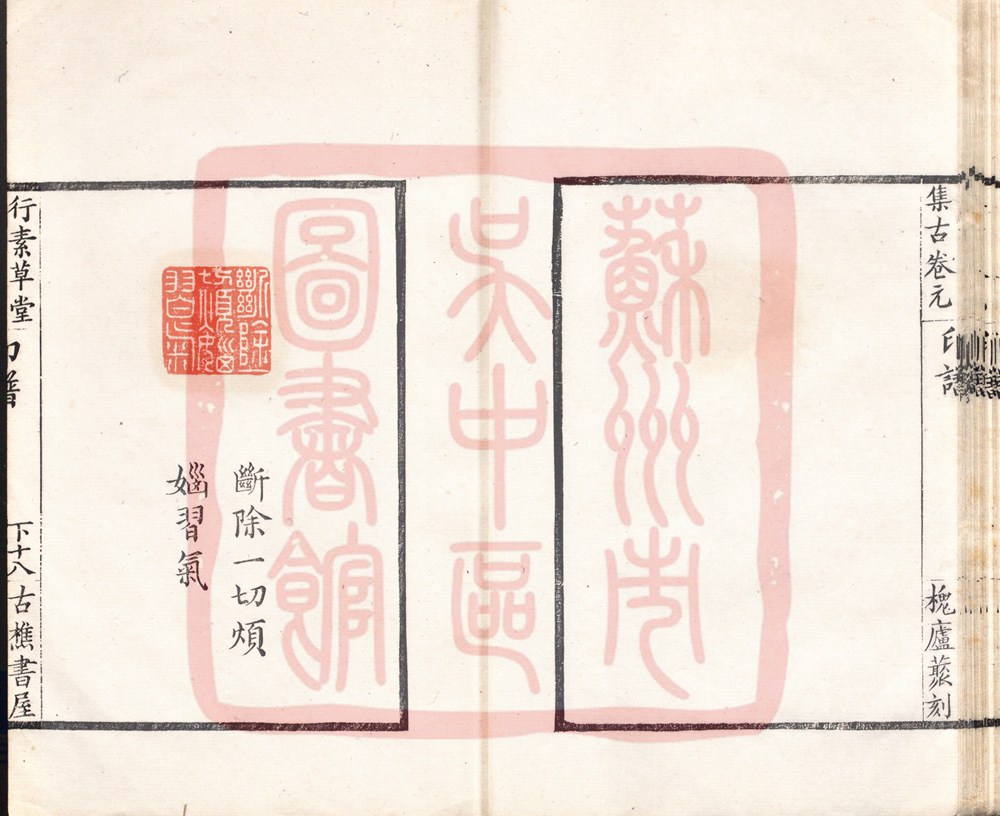 集古卷元
印譜
槐廬蒸刻
蘇州市
吳中區
圖書館
斷除一切煩惱習氣
斷除一切煩
惱習氣
行素草堂
印譜
下十八
古樵書屋